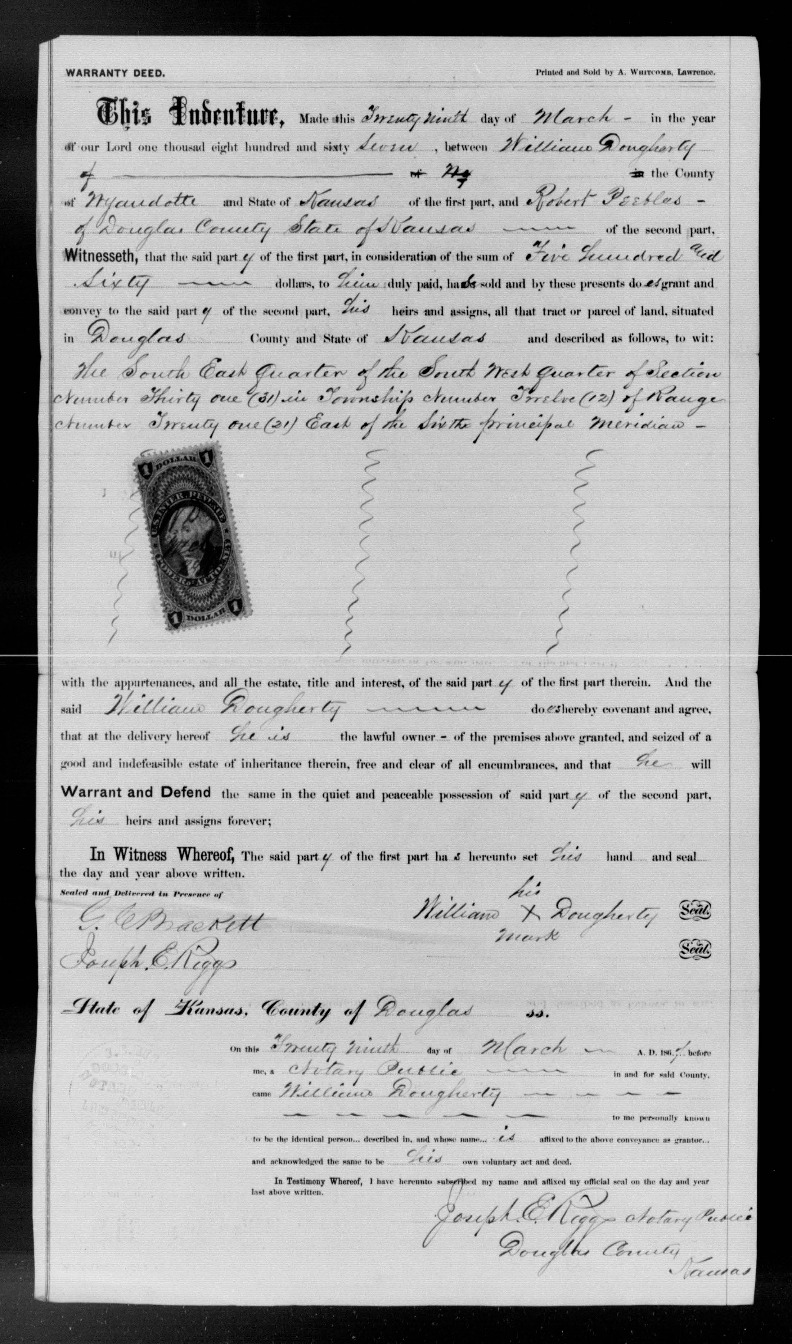 WARRANTY DEED. Printed and Sold by A. WHITCOMB, Lawrence.
This Indenture, Made this Twenty Ninth day of March - in the year
of our Lord one thousad eight hundred and sixty Seven , between William Dougherty
of the County
of Wyandotte and State of Kansas of the first part, and Robert Peebles -
of Douglas County State of Kansas of the second part,
Witnesseth, that the said party of the first part, in consideration of the sum of Five hundred and
Sixty dollars, to him duly paid, has sold and by these presents does grant and
convey to the said party of the second part, his heirs and assigns, all that tract or parcel of land, situated
in Douglas County and State of Kansas and described as follows, to wit:
The South East Quarter of the South West Quarter of Section
Number Thirty one (31) in Township Number Twelve (12) of Range
Number Twenty one (21) East of the Sixth principal Meridian -
1 DOLLAR 1
U.S. INTER. REVENUE
POWER OF ATTORNEY
1 DOLLAR 1
with the appurtenances, and all the estate, title and interest, of the said party of the first part therein. And the
said William Dougherty does hereby covenant and agree,
that at the delivery hereof he is the lawful owner - of the premises above granted, and seized of a
good and indefeasible estate of inheritance therein, free and clear of all encumbrances, and that he will
Warrant and Defend the same in the quiet and peaceable possession of said party of the second part,
his heirs and assigns forever;
In Witness Whereof, The said party of the first part has hereunto set his hand and seal
the day and year above written.
Sealed and Delivered in Presence of
his
G. C. Brackett William X Dougherty Seal.
mark
Joseph. E. Riggs Seal.
State of Kansas, County of Douglas ss.
On this Twenty Ninth day of March A. D. 1867, before
me, a Notary Public in and for said County,
came William Dougherty
to me personally known
to be the identical person... described in, and whose name... is affixed to the above conveyance as grantor...
and acknowledged the same to be his own voluntary act and deed.
In Testimony Whereof, I have hereunto subscribed my name and affixed my official seal on the day and year
last above written.
Joseph. E. Riggs Notary Public
Douglas County
Kansas